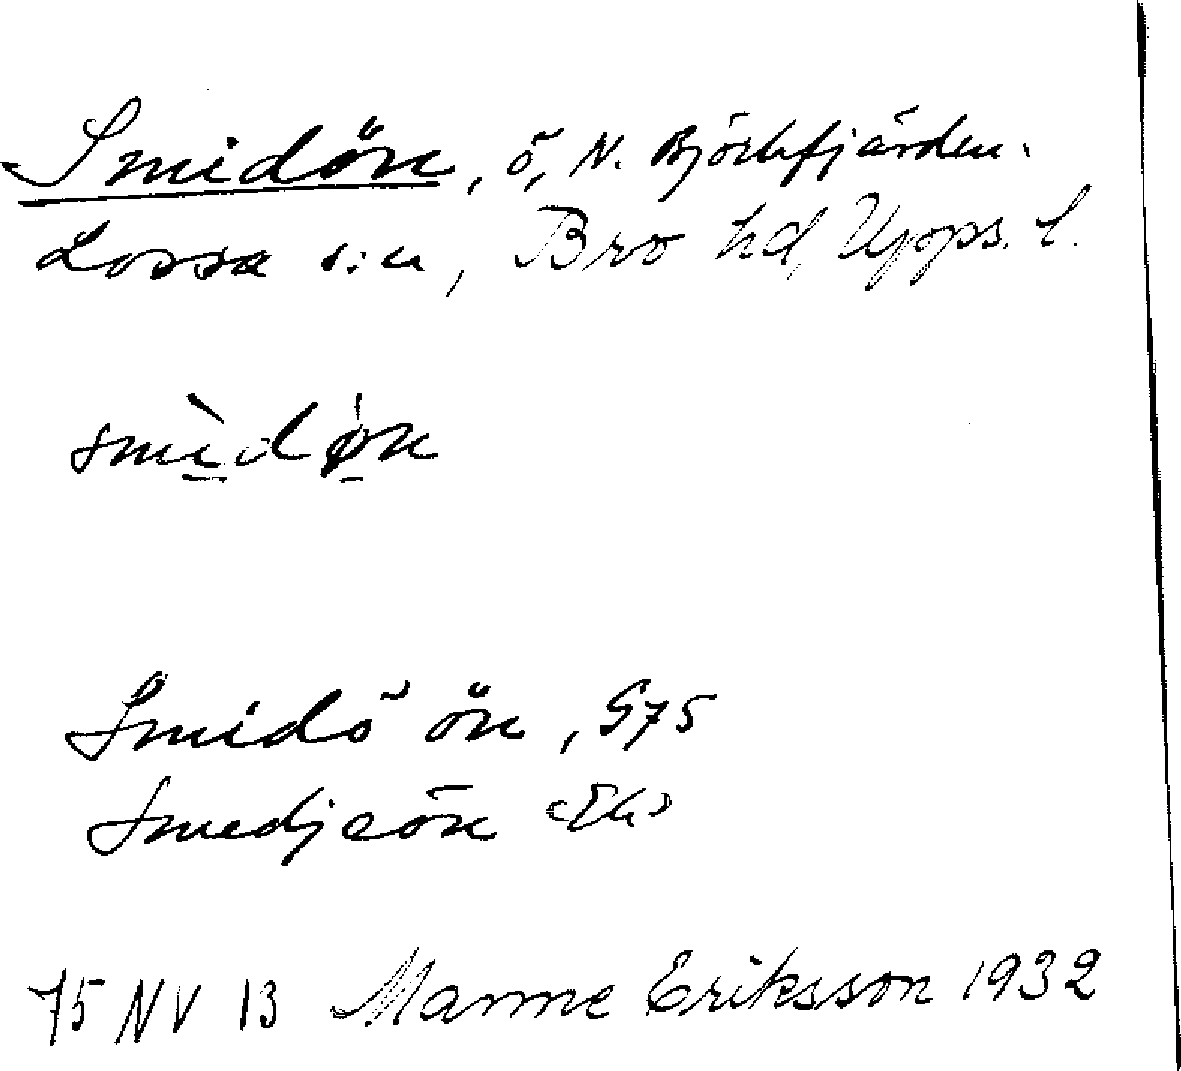 Smidön, ö, N. Björkfjärden.
Lossa s:n, Bro hd, Upps. l.
smìdø̀n
Smidö ön, G75
Smedjeön <Ek>
75 NV 13 Manne Eriksson 1932